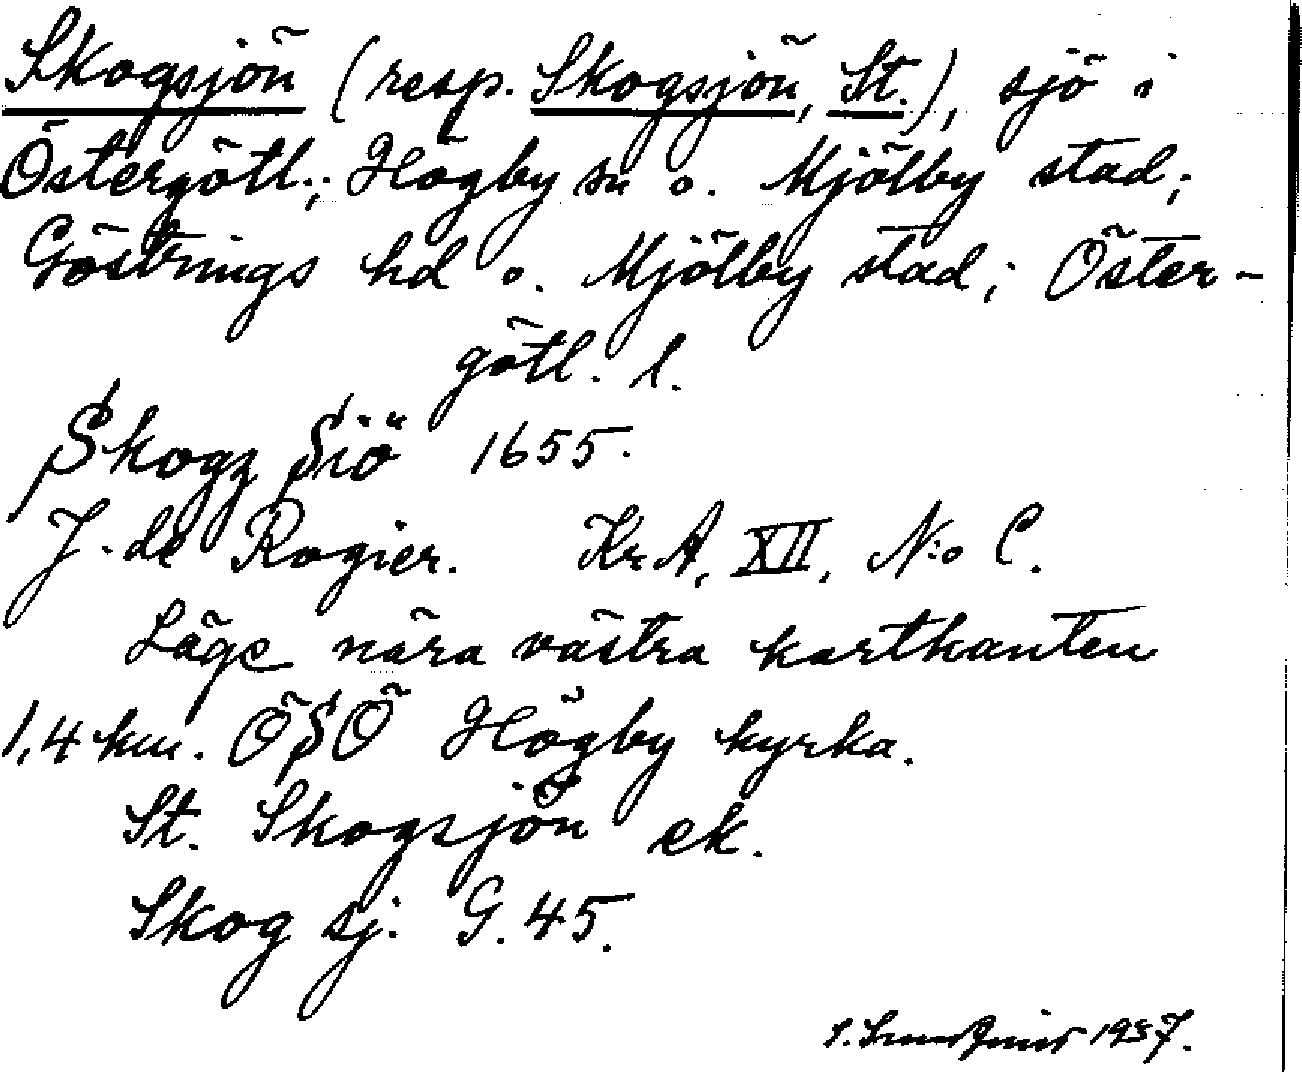 Skogsjön (resp. Skogsjön, St.), sjö i
Östergötl.; Högby sn o. Mjölby stad;
Göstrings hd o. Mjölby stad; Öster-
götl. l.
Skogz Siö 1655.
J. de Rogier. Kr.A, XII, N:o C.
Läge nära västra kartkanten
1,4 km. ÖSÖ Högby kyrka.
St. Skogsjön ek.
Skog sj. G. 45.
1937.